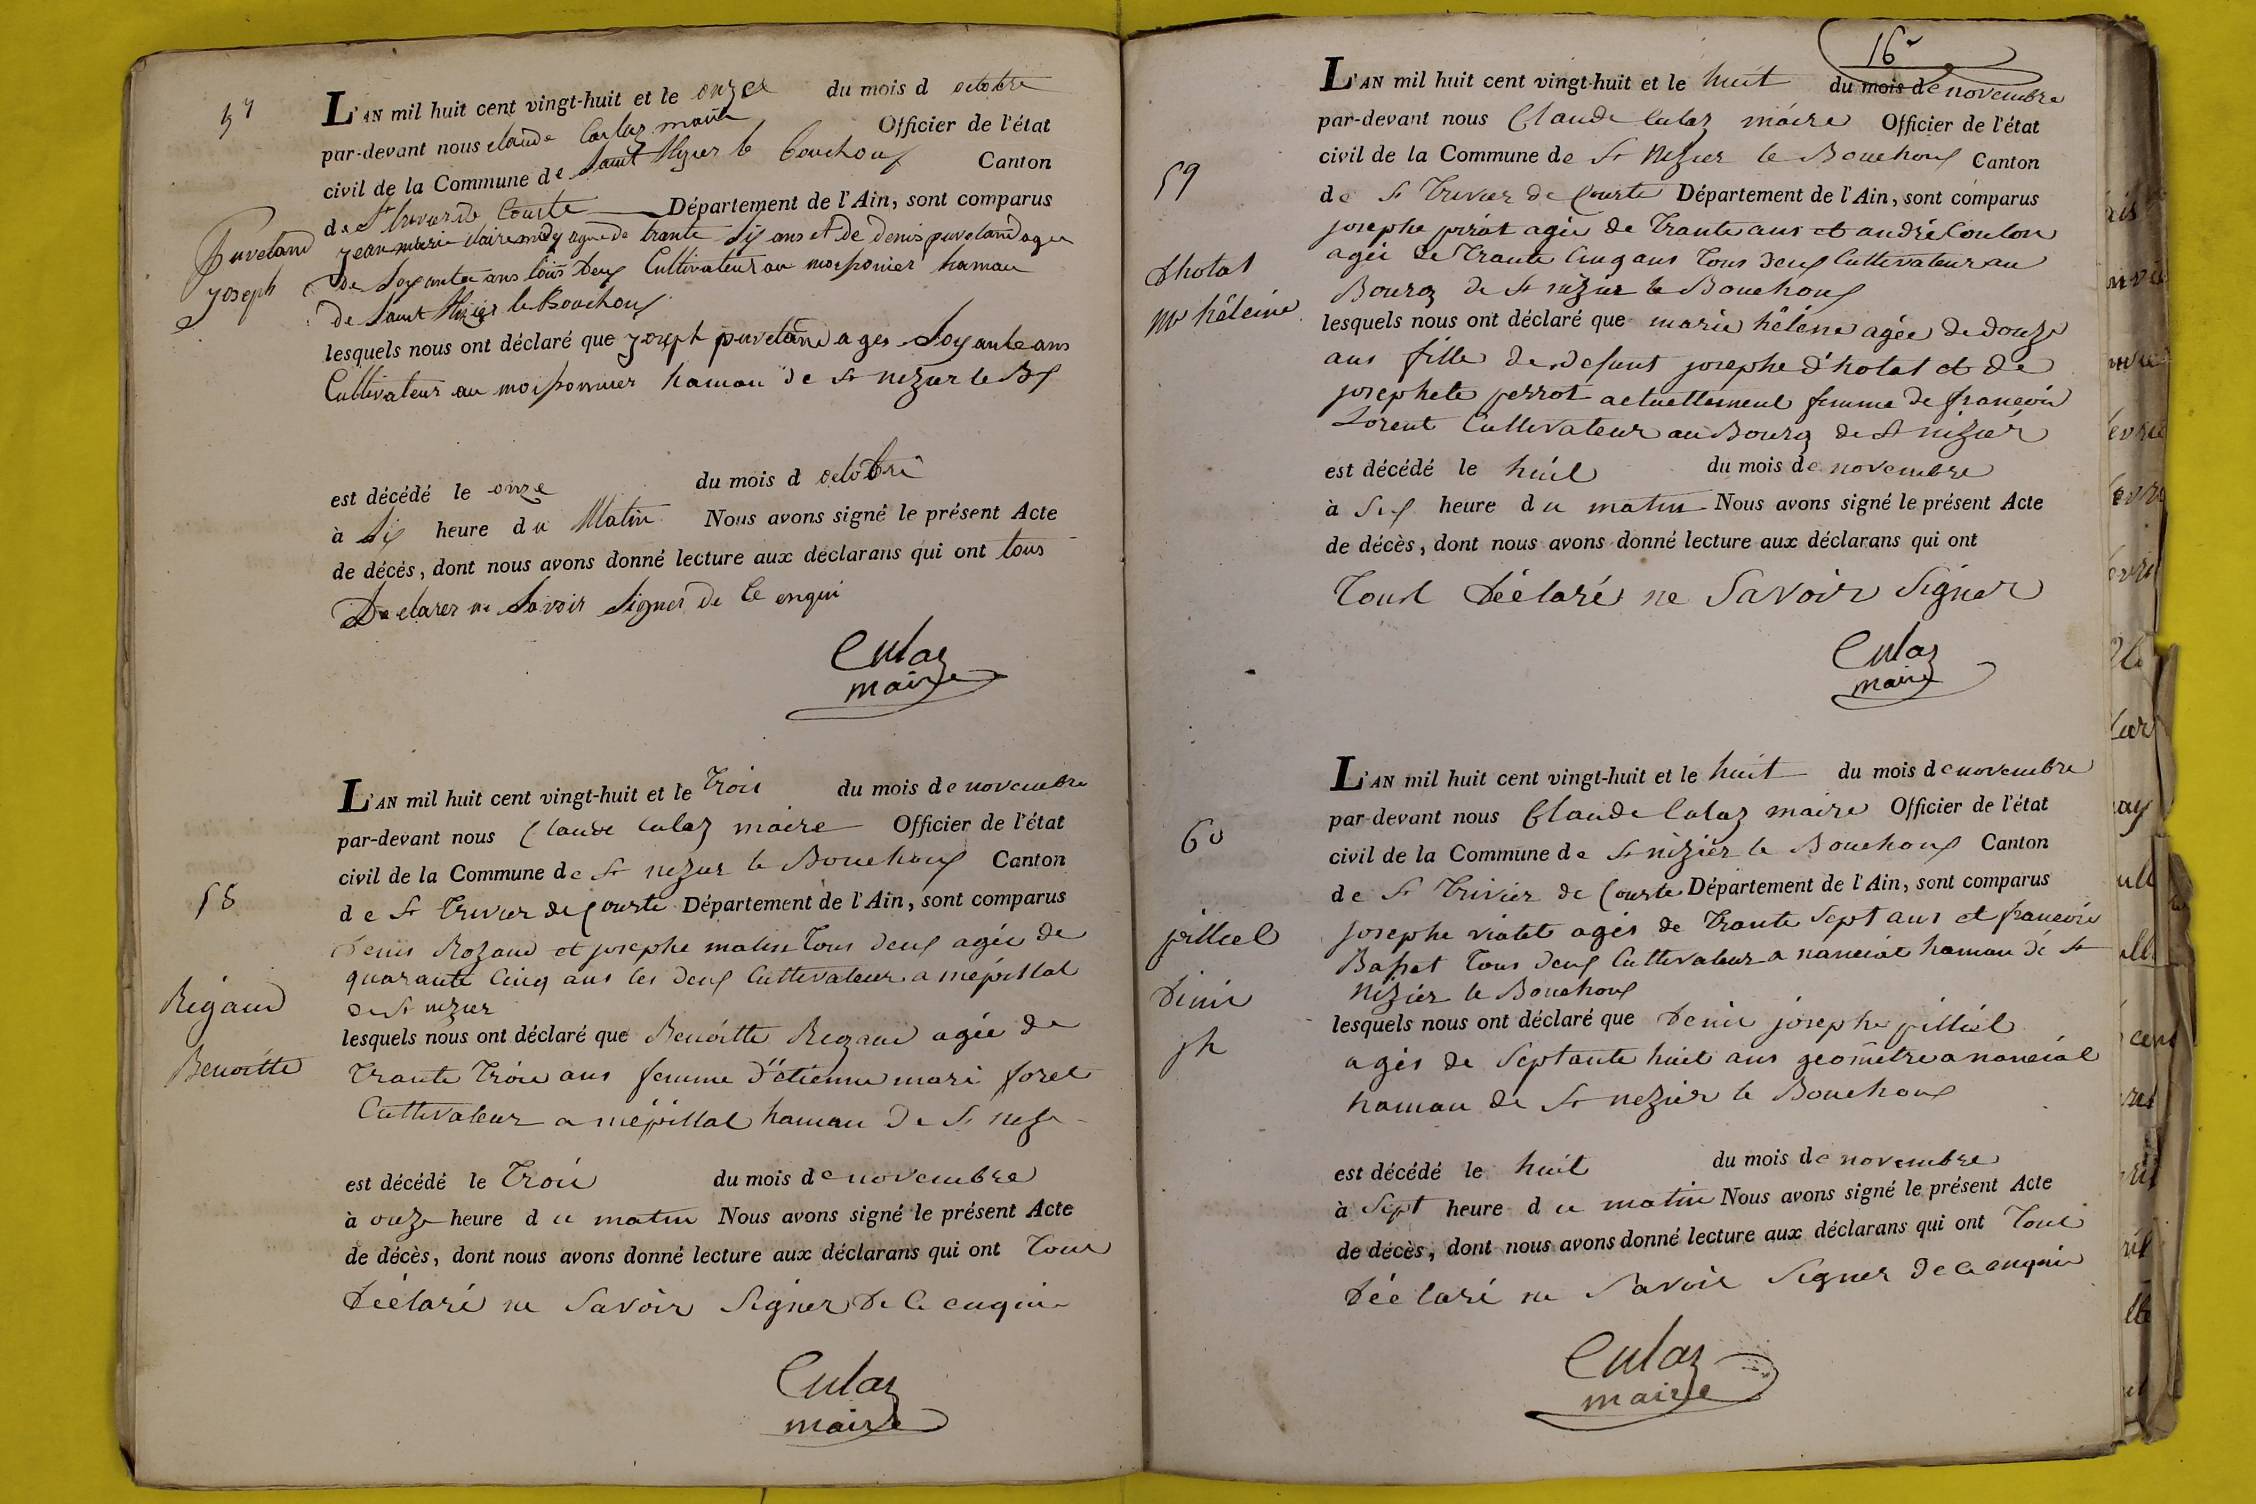 57
Puveland
Joseph
L'AN mil huit cent vingt-huit et le onze du mois d octobre
par-devant nous claude Culaz maire Officier de l'état
civil de la Commune de Saint Nizier le Bouchoux Canton
de St trivier de Courte Département de l'Ain, sont comparus
jean marie clairemidy agee de trante six ans et de denis puveland agee
de soyante ans tous deux Cultivateur au morponier hamau
de Saint Nizier le Bouchoux
lesquels nous ont déclaré que joseph puveland ages soyante ans
Cultivateur au morponnier hamau de St nizier le Bx
est décédé le onze du mois d octobre
à six heure du Matin Nous avons signé le présent Acte
de décès, dont nous avons donné lecture aux déclarans qui ont tous
Declarer ne Savoir Signer de Ce enqui
Culaz
maire
58
Rigaud
Benoitte
L'AN mil huit cent vingt-huit et le Trois du mois de novembre
par-devant nous Claude Culaz maire Officier de l'état
civil de la Commune de St nezier le Bouchoux Canton
de St Trivier de Courte Département de l'Ain, sont comparus
Denis Rozand et josephe matin Tous deux agée de
quarante Cinq ans les deux Cultivateur a mépillat
de St nezier
lesquels nous ont déclaré que Benoitte Regaud agée de
Trante Trois ans femme D'étienne mari foret
Cultivateur a mépillat hamau De St neze
est décédé le Trois du mois de novembre
à onze heure du matin Nous avons signé le présent Acte
de décès, dont nous avons donné lecture aux déclarans qui ont Tous
Déclaré ne Savoir Signer De Ce enquis
Culaz
maire
16e
59
Dhotat
Mie héleine
L'AN mil huit cent vingt-huit et le huit du mois de novembre
par-devant nous Claude Culaz maire Officier de l'état
civil de la Commune de St Nizier le Bouchoux Canton
de St Trivier de Courte Département de l'Ain, sont comparus
josephe pirat agée de Trante ans et andré Coulon
agée de Trante Cinq ans Tous deux Cultivateur au
Bourg de St nizier le Bouchoux
lesquels nous ont déclaré que marie héléne agée de douze
ans fille de defunt josephe d'hotat et de
josephete perrot actuellement femme de francois
Lorent Cultivateur au Bourg de St nizier
est décédé le huit du mois de novembre
à Six heure du matin Nous avons signé le présent Acte
de décès, dont nous avons donné lecture aux déclarans qui ont
Tout Déclaré ne Savoir Signer
Culaz
maire
60
pilliel
Denis
jh
L'AN mil huit cent vingt-huit et le huit du mois de novembre
par-devant nous Claude Culaz maire Officier de l'état
civil de la Commune de St nizier le Bouchoux Canton
de St Trivier de Courte Département de l'Ain, sont comparus
josephe viatet agés de Trante Sept ans et francois
Basset Tous deux Cultivateur a nanciat hamau de St
Nizier le Bouchoux
lesquels nous ont déclaré que Denis josephe pilliel
agés de Septante huit ans geométre a nanciat
hamau de St nezier le Bouchoux
est décédé le huit du mois de novembre
à Sept heure du matin Nous avons signé le présent Acte
de décès, dont nous avons donné lecture aux déclarans qui ont Tous
Déclaré ne Savoir Signer de Ce enquis
Culaz
maire